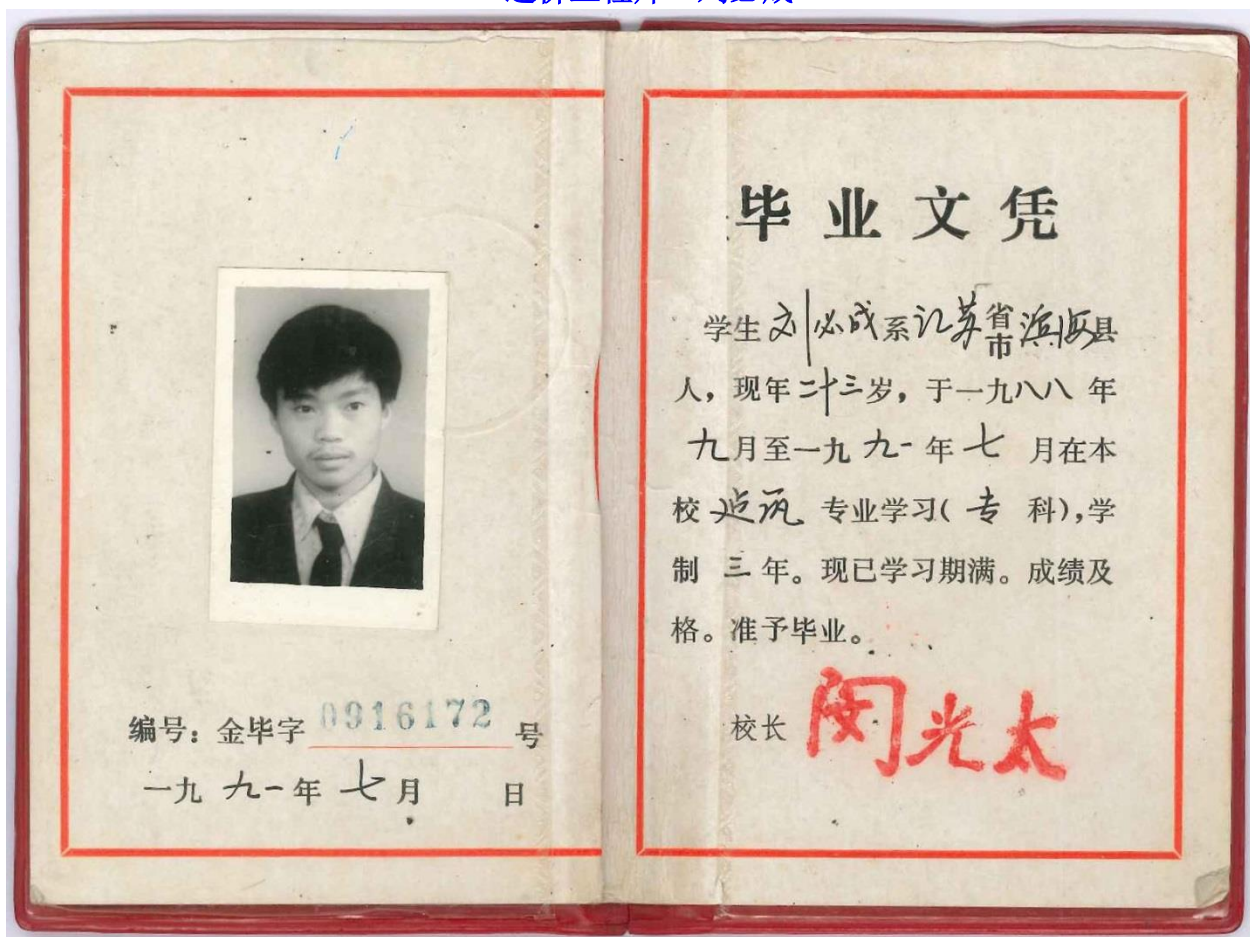 编号：金毕字 0916172 号
一九九一年七月 日
毕业文凭
学生刘必成系江苏省市滨海县
人，现年二十三岁，于一九八八年
九月至一九九一年七月在本
校建筑专业学习（专科），学
制三年。现已学习期满。成绩及
格。准予毕业。
校长 闵光太